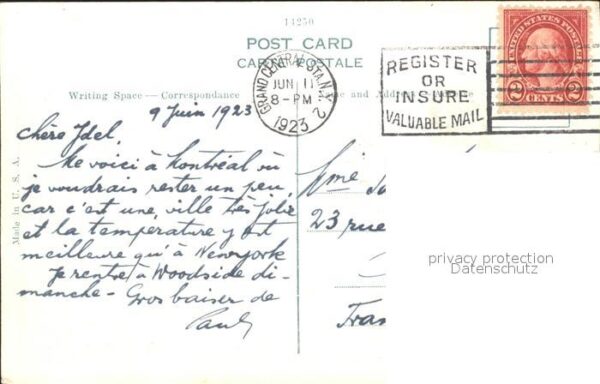 14250
POST CARD
CARTE POSTALE
Writing Space — Correspondance
Name and Address — Adresse
GRAND CENTRAL STA. N.Y.
JUN 11
8-PM
1923
2
REGISTER
OR
INSURE
VALUABLE MAIL
UNITED STATES POSTAGE
2 CENTS 2
Made in U. S. A.
9 Juin 1923
Chère Idel,
Me voici à Montréal où
je voudrais rester un peu,
car c'est une ville très jolie
et la température y est
meilleure qu'à Newyork
Je rentre à Woodside di-
manche - Gros baiser de
Paul
Mme
23 rue
Fran
privacy protection
Datenschutz